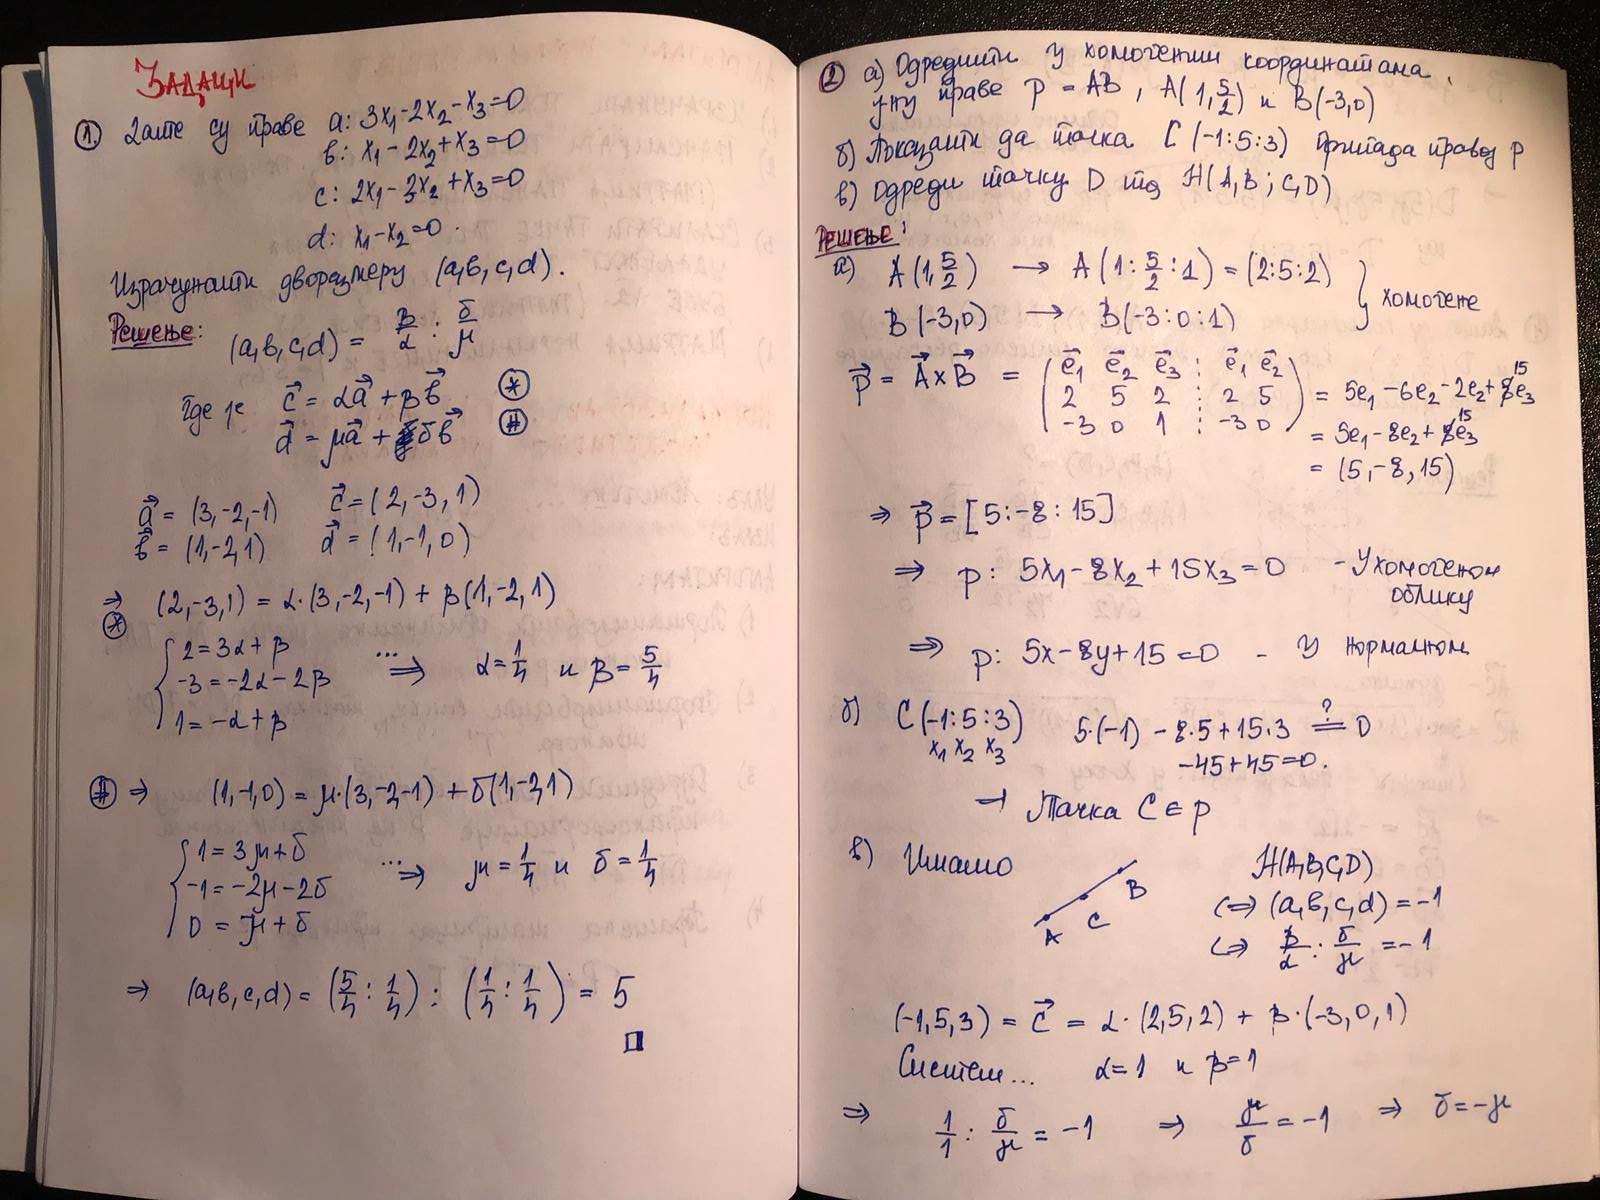 Задаци
1. Дате су праве a: 3x₁-2x₂-x₃=0
b: x₁-2x₂+x₃=0
c: 2x₁-3x₂+x₃=0
d: x₁-x₂=0.
Израчунати дворазмеру (a,b,c,d).
Решење: (a,b,c,d) = β/α : δ/μ
где је c⃗ = αa⃗ + βb⃗ (*)
d⃗ = μa⃗ + δb⃗ (#)
a⃗ = (3,-2,-1) c⃗ = (2,-3,1)
b⃗ = (1,-2,1) d⃗ = (1,-1,0)
(*) ⇒ (2,-3,1) = α·(3,-2,-1) + β(1,-2,1)
{ 2=3α+β
-3=-2α-2β ... ⇒ α=1/4 и β=5/4
1=-α+β
(#) ⇒ (1,-1,0) = μ·(3,-2,-1) + δ(1,-2,1)
{ 1=3μ+δ
-1=-2μ-2δ ... ⇒ μ=1/4 и δ=1/4
0=-μ+δ
⇒ (a,b,c,d) = (5/4 : 1/4) : (1/4 : 1/4) = 5
□
2. а) Одредити у хомогеним координатама
јну праве p = AB, A(1,5/2) и B(-3,0)
б) Показати да тачка C(-1:5:3) припада правој p
в) Одреди тачку D тд H(A,B;C,D)
Решење:
а) A(1,5/2) → A(1:5/2:1) = (2:5:2)
B(-3,0) → B(-3:0:1) } хомогене
p⃗ = A⃗×B⃗ = ( e⃗₁ e⃗₂ e⃗₃ ⋮ e⃗₁ e⃗₂
2 5 2 ⋮ 2 5
-3 0 1 ⋮ -3 0 ) = 5e₁-6e₂-2e₂+15e₃
= 5e₁-8e₂+15e₃
= (5,-8,15)
⇒ p⃗ = [5:-8:15]
⇒ p: 5x₁-8x₂+15x₃=0 - у хомогеном
облику
⇒ p: 5x-8y+15=0 - у нормалном
б) C(-1:5:3) 5·(-1)-8·5+15·3 ?= 0
x₁ x₂ x₃ -45+45=0.
→ Тачка C∈p
в) Имамо A C B H(A,B,C,D)
⇔ (a,b,c,d)=-1
⇔ β/α : δ/μ = -1
(-1,5,3) = c⃗ = α·(2,5,2) + β·(-3,0,1)
Систем... α=1 и β=1
⇒ 1/1 : δ/μ = -1 ⇒ μ/δ = -1 ⇒ δ=-μ